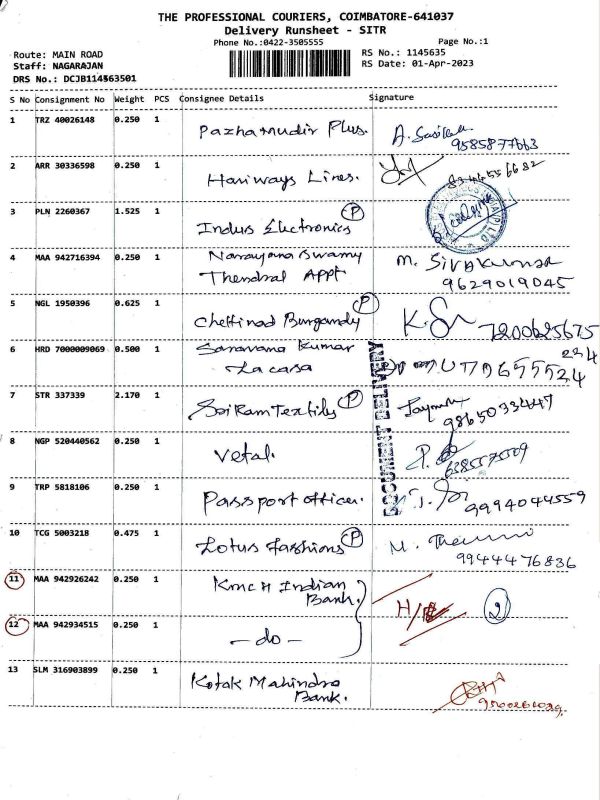 THE PROFESSIONAL COURIERS, COIMBATORE-641037
Delivery Runsheet - SITR
Phone No.:0422-3505555 Page No.:1
Route: MAIN ROAD RS No.: 1145635
Staff: NAGARAJAN RS Date: 01-Apr-2023
DRS No.: DCJB114563501
S No Consignment No Weight PCS Consignee Details Signature
1 TRZ 40026148 0.250 1 Pazhamudir Plus. 9585877663
2 ARR 30336598 0.250 1 Hariways Lines.
3 PLN 2260367 1.525 1 Indus Electronics P
4 MAA 942716394 0.250 1 Narayana Swamy M. SIVAKUMAR
Thendral Appt 9629019045
5 NGL 1950396 0.625 1 Chettinad Burgandy P 7200625675
6 HRD 7000009069 0.500 1 Saravana Kumar 234
La casa
7 STR 337339 2.170 1 Sri Ram Textiles P 9865033447
8 NGP 520440562 0.250 1 Vetal.
9 TRP 5818106 0.250 1 Passport officer. 9994044559
10 TCG 5003218 0.475 1 Lotus fashions P
9944476836
11 MAA 942926242 0.250 1 KMCH Indian
Bank.
12 MAA 942934515 0.250 1 - do - 2
13 SLM 316903899 0.250 1 Kotak Mahindra
Bank.
DOCUMENT DELIVERY